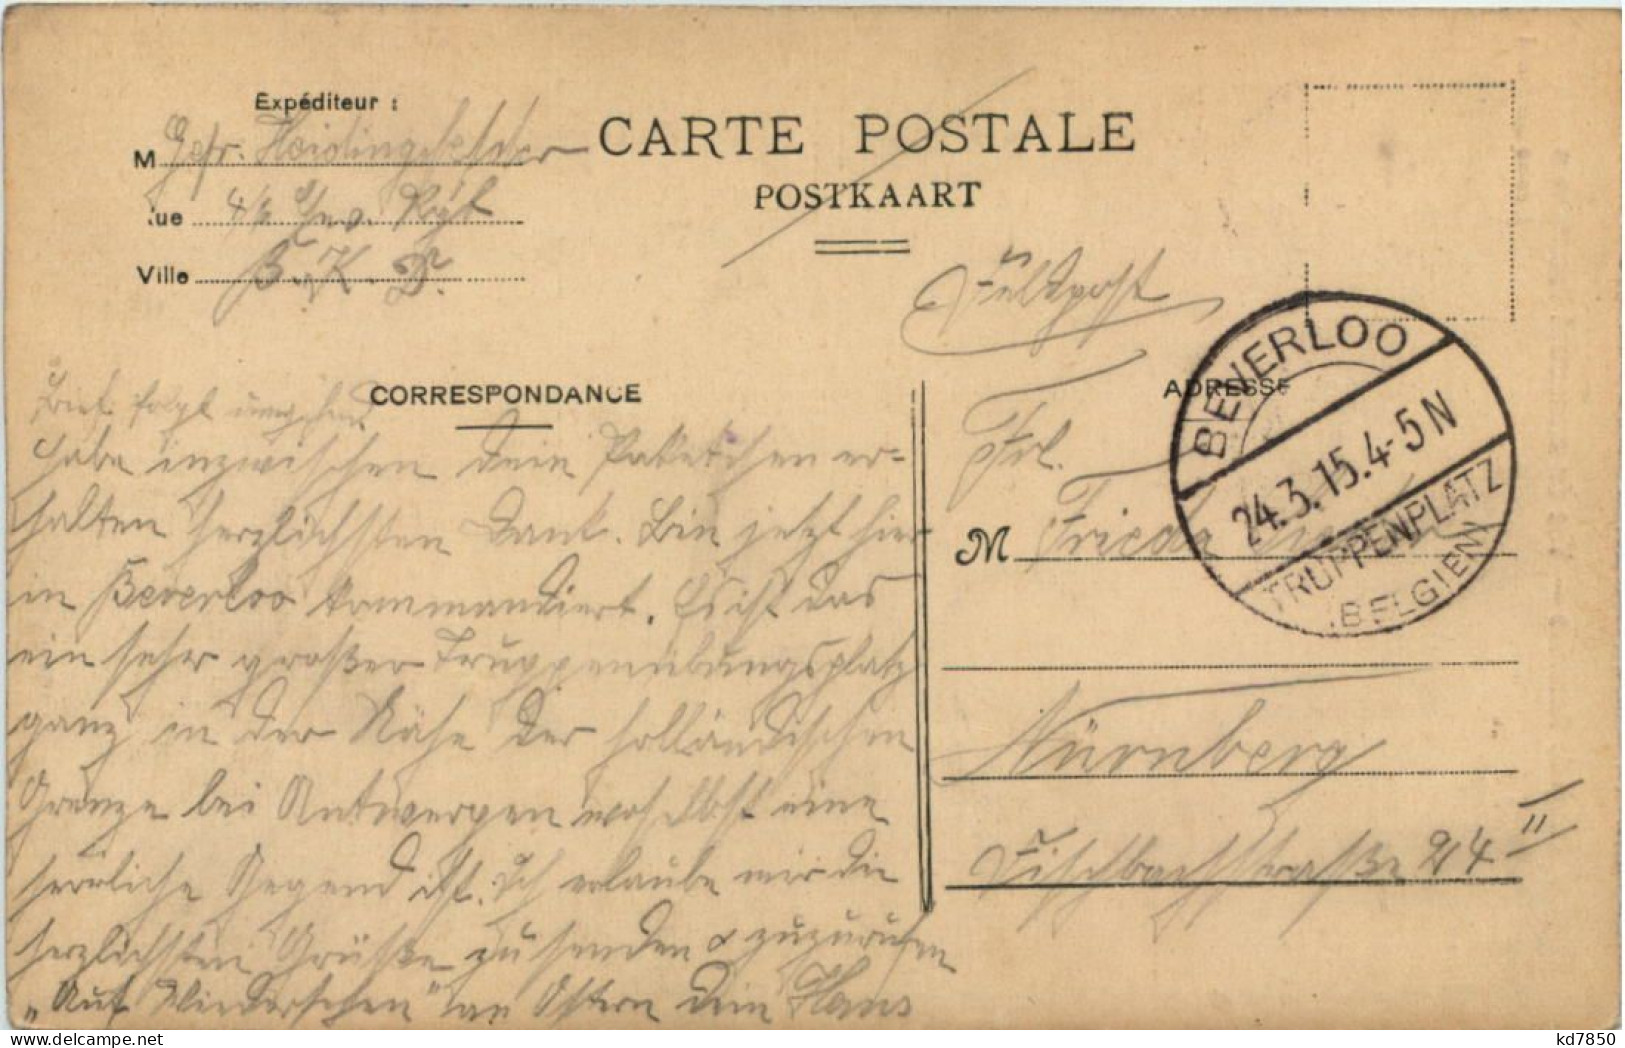 Expéditeur :
M Gefr. Heidingsfelder
rue 4/2 Inf. Rgt
Ville B. K. D.
CARTE POSTALE
POSTKAART
Feldpost
BEVERLOO
24.3.15.4-5N
TRUPPENPLATZ
(BELGIEN)
CORRESPONDANCE
ADRESSE
Brief folgt umgehend
Habe inzwischen Dein Paketchen er-
halten herzlichsten Dank. Bin jetzt hier
in Beverloo kommandiert. Es ist das
ein sehr großer Truppenübungsplatz
ganz in der Nähe der holländischen
Grenze bei Antwerpen woselbst eine
herrliche Gegend ist. Ich erlaube mir die
herzlichsten Grüße zu senden & zuzurufen
„Auf Wiedersehen" an Ostern Dein Hans
Frl.
M Frieda
Nürnberg
Fischbachstraße 24 II
kd7850